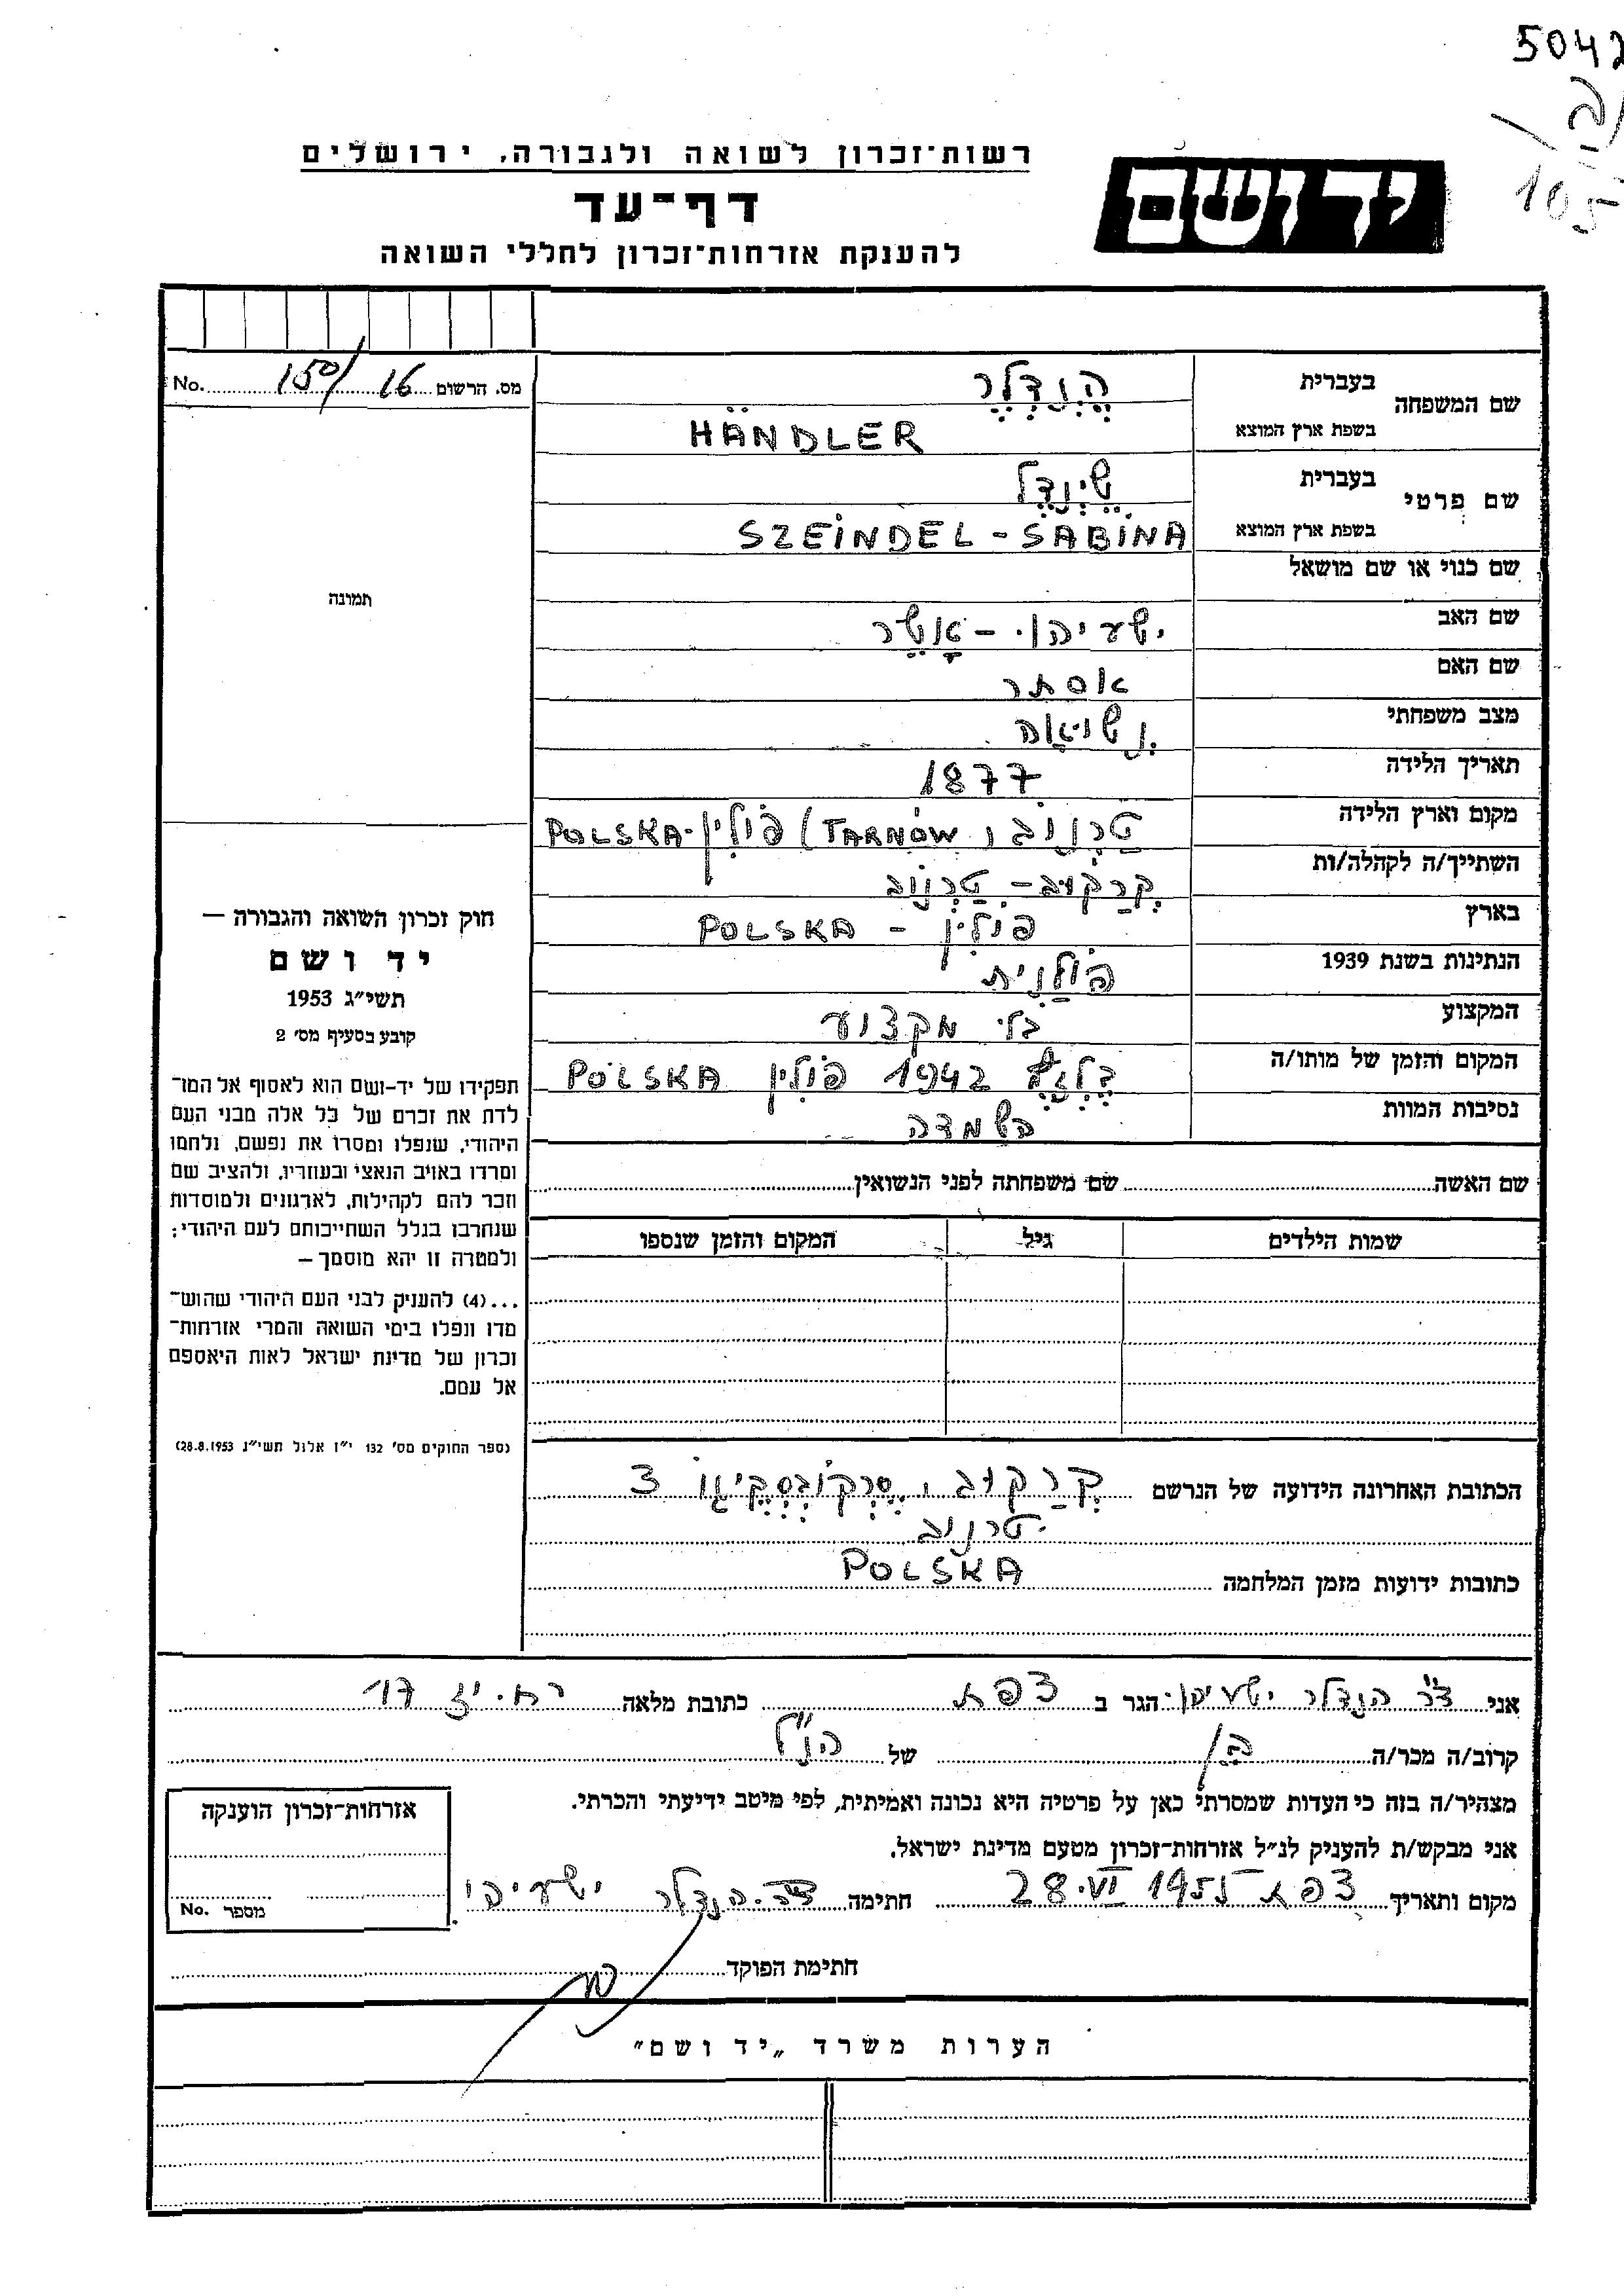 5042
105
רשות־זכרון לשואה ולגבורה, ירושלים
יד ושם
דף־עד
להענקת אזרחות־זכרון לחללי השואה
מס. הרשום 16 /150 No.
שם המשפחה
בעברית הֶנְדְלֶר
בשפת ארץ המוצא HÄNDLER
שם פרטי
בעברית שֵיְנְדֶל
בשפת ארץ המוצא SZEINDEL - SABINA
שם כנוי או שם מושאל
שם האב ישעיהו - אָשֵר
שם האם אסתר
מצב משפחתי נשואה
תאריך הלידה 1877
מקום וארץ הלידה טַרְנוֹב, (TARNÓW) פולין-POLSKA
השתייך/ה לקהלה/ות קְרַקוֹב - טַרְנוֹב
בארץ פולין - POLSKA
הנתינות בשנת 1939 פולנית
המקצוע בלי מקצוע
המקום והזמן של מותו/ה בֶּלְזֶץ 1942 פולין POLSKA
נסיבות המוות השמדה
שם האשה שם משפחתה לפני הנשואין
שמות הילדים גיל המקום והזמן שנספו
תמונה
חוק זכרון השואה והגבורה —
יד ושם
תשי״ג 1953
קובע בסעיף מס׳ 2
תפקידו של יד-ושם הוא לאסוף אל המו־
לדת את זכרם של כל אלה מבני העם
היהודי, שנפלו ומסרו את נפשם, נלחמו
ומרדו באויב הנאצי ובעוזריו, ולהציב שם
וזכר להם לקהילות, לארגונים ולמוסדות
שנחרבו בגלל השתייכותם לעם היהודי;
ולמטרה זו יהא מוסמך —
...(4) להעניק לבני העם היהודי שהוש־
מדו ונפלו בימי השואה והמרי אזרחות־
זכרון של מדינת ישראל לאות היאספם
אל עמם.
(ספר החוקים מס׳ 132 י״ז אלול תשי״ג 28.8.1953)
הכתובת האחרונה הידועה של הנרשם קְרַקוֹב, סֶרְקוֹבְסְקֶיגוֹ 3
טרנוב
כתובות ידועות מזמן המלחמה POLSKA
אני ד״ר הנדלר ישעיהו הגר ב צפת כתובת מלאה רח. יז 17
קרוב/ה מכר/ה בן של הנ״ל
מצהיר/ה בזה כי העדות שמסרתי כאן על פרטיה היא נכונה ואמיתית, לפי מיטב ידיעתי והכרתי.
אני מבקש/ת להעניק לנ״ל אזרחות־זכרון מטעם מדינת ישראל.
מקום ותאריך צפת 28.VI 1955 חתימה ד״ר הנדלר ישעיהו
חתימת הפוקד
אזרחות־זכרון הוענקה
מספר No.
הערות משרד „יד ושם״